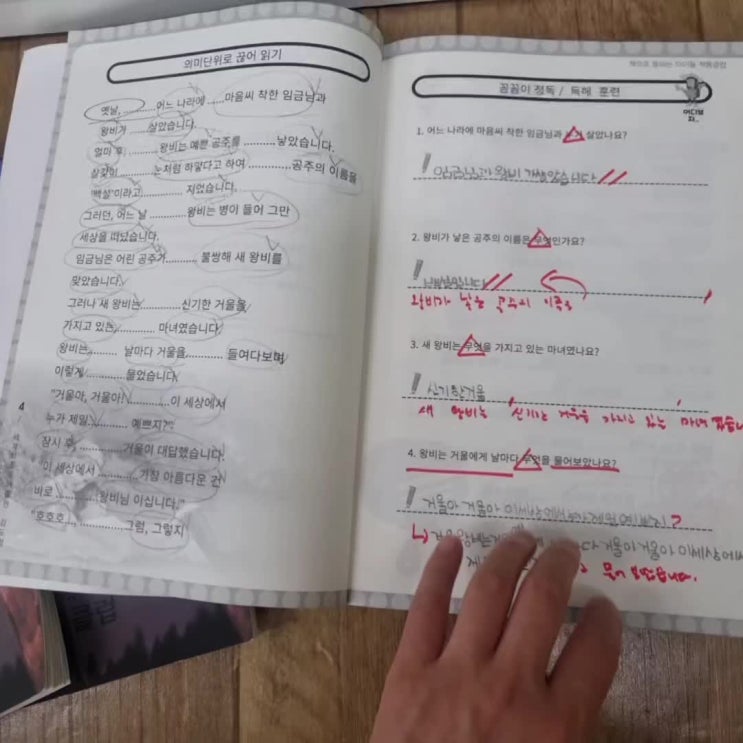 의미단위로 끊어 읽기
옛날, ........ 어느 나라에 ........ 마음씨 착한 임금님과
왕비가 ........ 살았습니다.
얼마 후 ........ 왕비는 예쁜 공주를 ........ 낳았습니다.
살빛이 ........ 눈처럼 하얗다고 하여 ........ 공주의 이름을
'백설'이라고 ........ 지었습니다.
그러던, 어느 날 ........ 왕비는 병이 들어 그만
세상을 떠났습니다.
임금님은 어린 공주가 ........ 불쌍해 새 왕비를
맞았습니다.
그러나 새 왕비는 ........ 신기한 거울을
가지고 있는 ........ 마녀였습니다.
왕비는 ........ 날마다 거울을 ........ 들여다보며
이렇게 ........ 물었습니다.
"거울아, 거울아! ........ 이 세상에서
누가 제일 ........ 예쁘지?"
잠시 후, ........ 거울이 대답했습니다.
"이 세상에서 ........ 가장 아름다운 건
바로 ........ 왕비님 이십니다."
"호호호 ........ 그럼, 그렇지
4
꼼꼼이 정독 / 독해 훈련
어디보자..
1. 어느 나라에 마음씨 착한 임금님과 살았나요?
임금님과 왕비가 살았습니다
2. 왕비가 낳은 공주의 이름은 무엇인가요?
왕비가 낳은 공주의 이름은
3. 새 왕비는 무엇을 가지고 있는 마녀였나요?
신기한거울
새 왕비는 신기한 거울을 가지고 있는 마녀
4. 왕비는 거울에게 날마다 무엇을 물어보았나요?
거울아 거울아 이
거울아 거울아 이세상에서
물어 보았습니다.